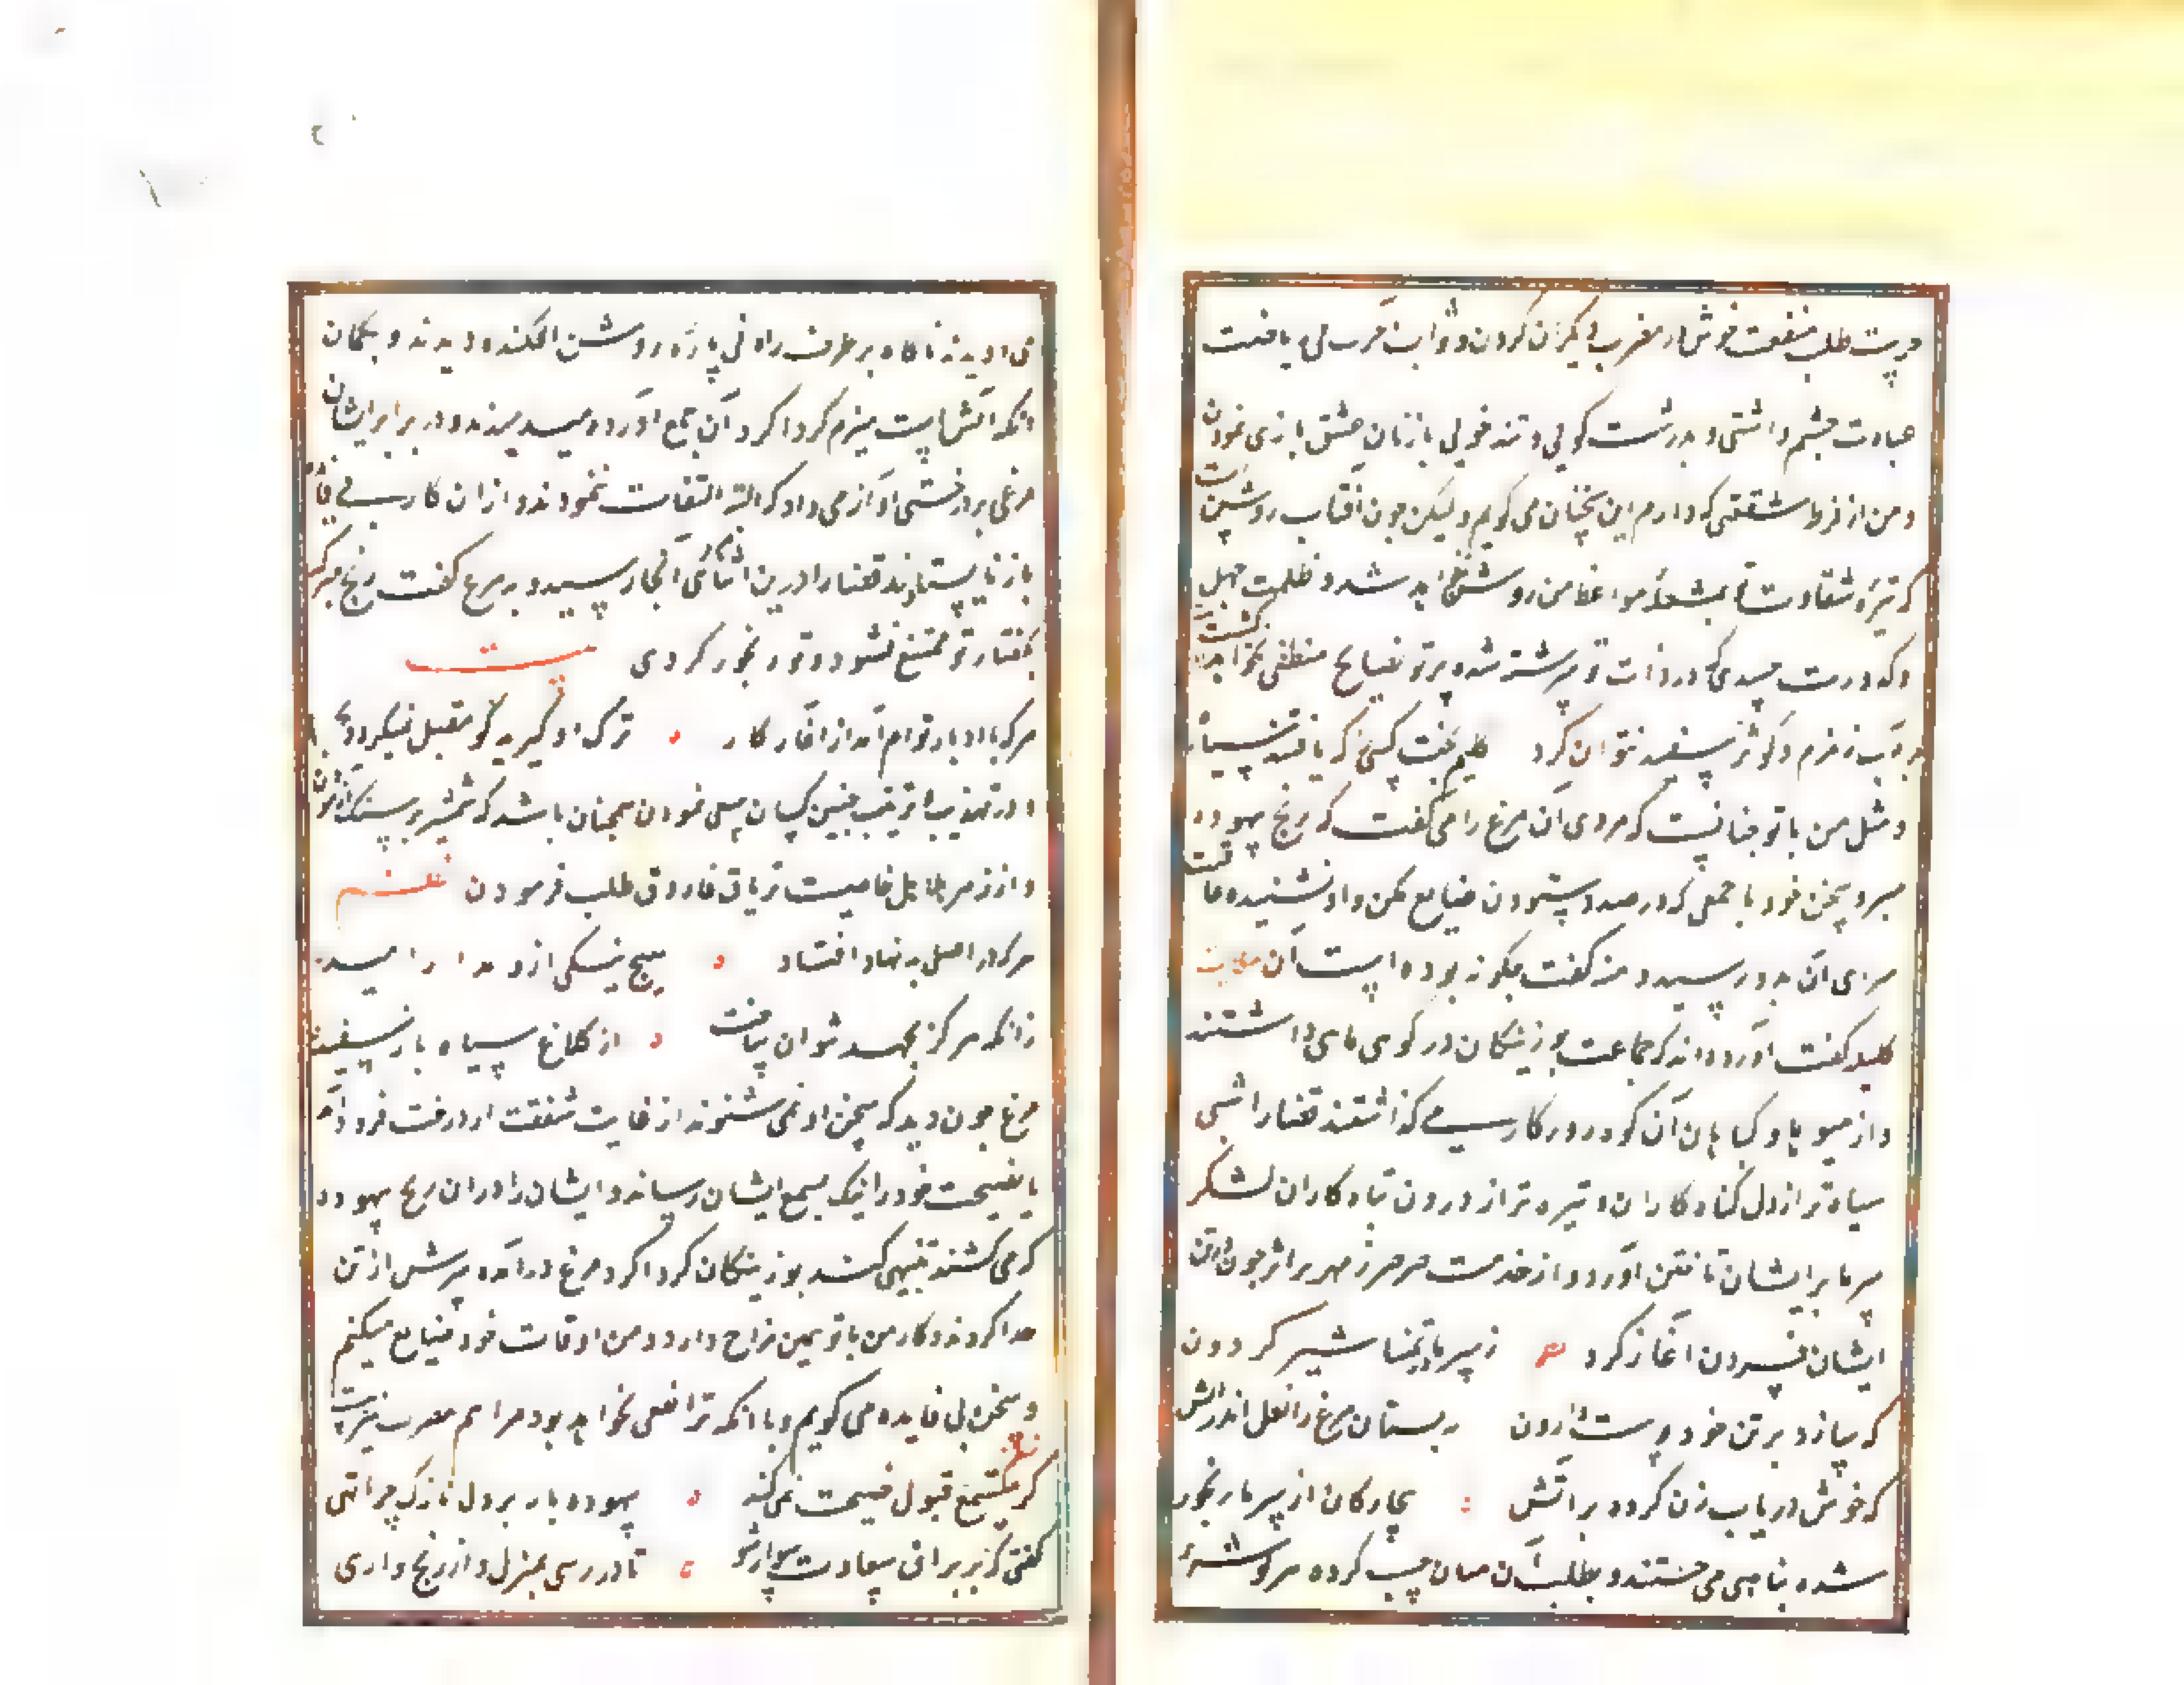 دوست طلب منفعت خویش از مضرت دیگران کردن و ثواب آخرت بی ریاضت
عبادت چشم داشتن و بدرشت کویی و تند خویی بازنان عشق بازی نمودن
و من از فرط شفقتی که دارم این سخنان می کویم ولیکن جون آفتاب روشنست
که تیره شقاوت تو بشعله مواعظ من روشن نخواهد شد و ظلمت جهل
و کدورت حسدی که در ذات تو سرشته شده بر تو نصایح منطفی نخواهد کشت
به آب زمزم و کوثر سفید نتوان کرد کلیم بخت کسی که بافتند سیاه
و مثل من با تو جنانست که مردی آن مرغ را می کفت که رنج بیهوده
مبر و سخن خود با جمعی که در صدد ستودن ضایع مکن و او نشنیده عاقبت
سزای آن بدو رسید دمنه کفت جکونه بوده است آن حکایت
کلیله کفت آورده اند که جماعت بوزینکان در کوهی مأوی داشتند
و از میوها و کیاهان آن کوه روزکار می کذاشتند قضا را شبی
سیاه تر از دل کناه کاران و تیره تر از درون تباه کاران لشکر
سرما بر ایشان تاختن آورد و از خدمت صرصر زمهریر اثر خون در تن
ایشان فسردن آغاز کرد ز سرما بتمنا شیر کردون
که سازد بر تن خود پوست وارون ببستان مرغ را نعل اندر آتش
که خوش دریاب زن کرده بر آتش بیچارکان از سرما رنجور
شده پناهی می جستند و بطلب آن میان چست کرده هر کوشه
می دویدند ناکاه بر طرف راه نی پاره روشن افکنده دیدند و بکمان
انکه آتشست هیزم کردا کرد آن جمع آورده میدمیدند و در برابر ایشان
مرغی بر درختی آواز می داد که البته التفات ننمودند و از ان کار بی فایده
باز نایستادند قضا را درین اثنا مردی آنجا رسید و مرغ کفت رنج مبر که
بکفتار تو ممتنع نشوند و تو رنجور کردی بیت
هرکه با ادبار توام آمد از آغاز کار ترک او کیرید کو مقبل نمیکردد
و در تهذیب و تربیت جنین کسان سعی نمودن همجنان باشد که شمشیر بر سنک آزمودن
و از زهر هلاهل خاصیت تریاق فاروق طلب فرمودن نظم
هرکه در اصل بد نهاد افتاد هیچ نیکی ازو مدار امید
زانکه هرکز بجهد نتوان یافت از کلاغ سیاه باز سفید
مرغ جون دید که سخن او نمی شنوند از غایت شفقت از درخت فرود آمد
تا نصیحت خود را نیک بسمع ایشان رساند و ایشان را از ان رنج بیهوده
که می کشند تنبیهی کند بوزینکان کردا کرد مرغ درآمده سرش از تن
جدا کردند و کار من با تو همین مزاج دارد و من اوقات خود ضایع میکنم
و سخن بی فایده می کویم و با انکه ترا نفعی نخواهد بود مرا هم مضرت
کر مستمع قبول نصیحت نمی کند بیهوده بار بر دل نازک جرا نهی
کفتی که بر براق سعادت سوار شو تا در رسی بمنزل و از رنج وارهی